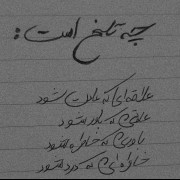 چه تلخ است:
علاقه‌ای که عادت شود
عادتی که باور شود
باوری که خاطره شود
خاطره‌ای که درد شود